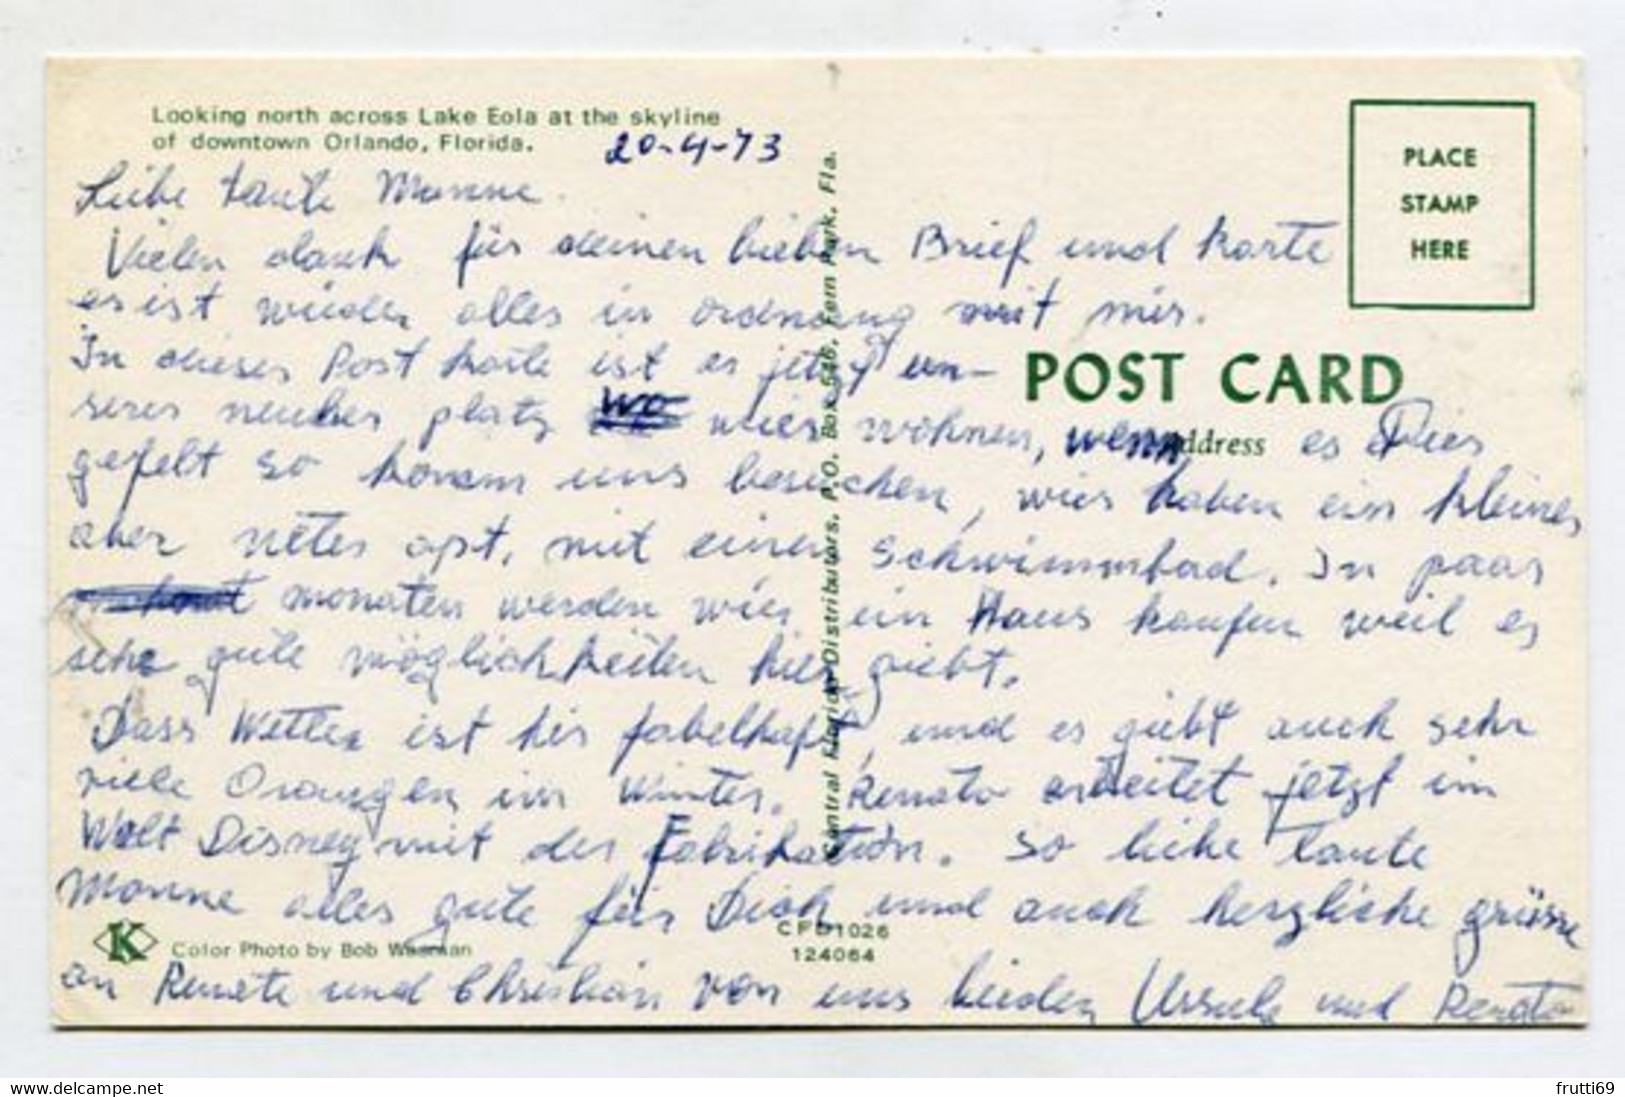 Looking north across Lake Eola at the skyline
of downtown Orlando, Florida.
20-4-73
PLACE
STAMP
HERE
Liebe tante Monne.
Vielen dank für deinen lieben Brief und karte
es ist wieder alles in ordnung mit mir.
In dieses Post karte ist es jetzt un-
seres neues platz wo wier wohnen, wenn es Dier
POST CARD
Address
gefelt so komm uns besuchen, wier haben ein kleines
aber nettes apt. mit einen schwimmbad. In paar
monaten werden wier ein Haus kaufen weil es
sehr gute möglichkeiten hier giebt.
Dass Wetter ist hir fabelhaft, und es giebt auch sehr
viele Orangen im Winter. Renato arbeitet jetzt im
Walt Disney mit der Fabrikation. so liebe tante
Monne alles gute für Dich und auch herzliche grüsse
an Renate und Christian von uns beiden Ursula und Renato
K
Color Photo by Bob
CFD1026
124064
Central Florida Distributors, P.O. Box 546, Fern Park, Fla.
© delcampe.net
frutti69